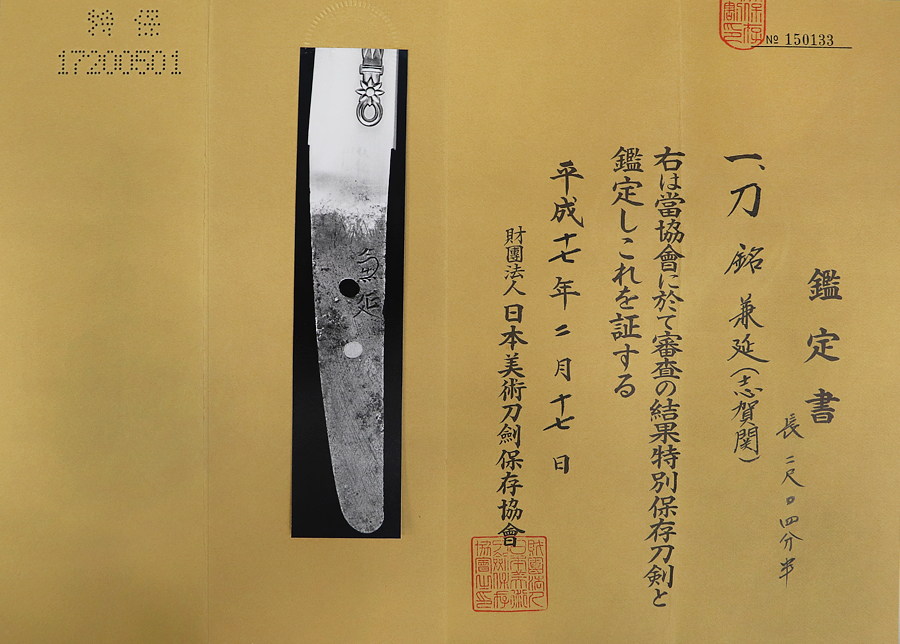 保存
割印
№ 150133
鑑定書
長 二尺〇四分半
一、刀 銘 兼延(志賀関)
右は當協會に於て審査の結果特別保存刀剣と
鑑定しこれを証する
平成十七年二月十七日
財團法人日本美術刀劍保存協會
兼延
特保
17200501